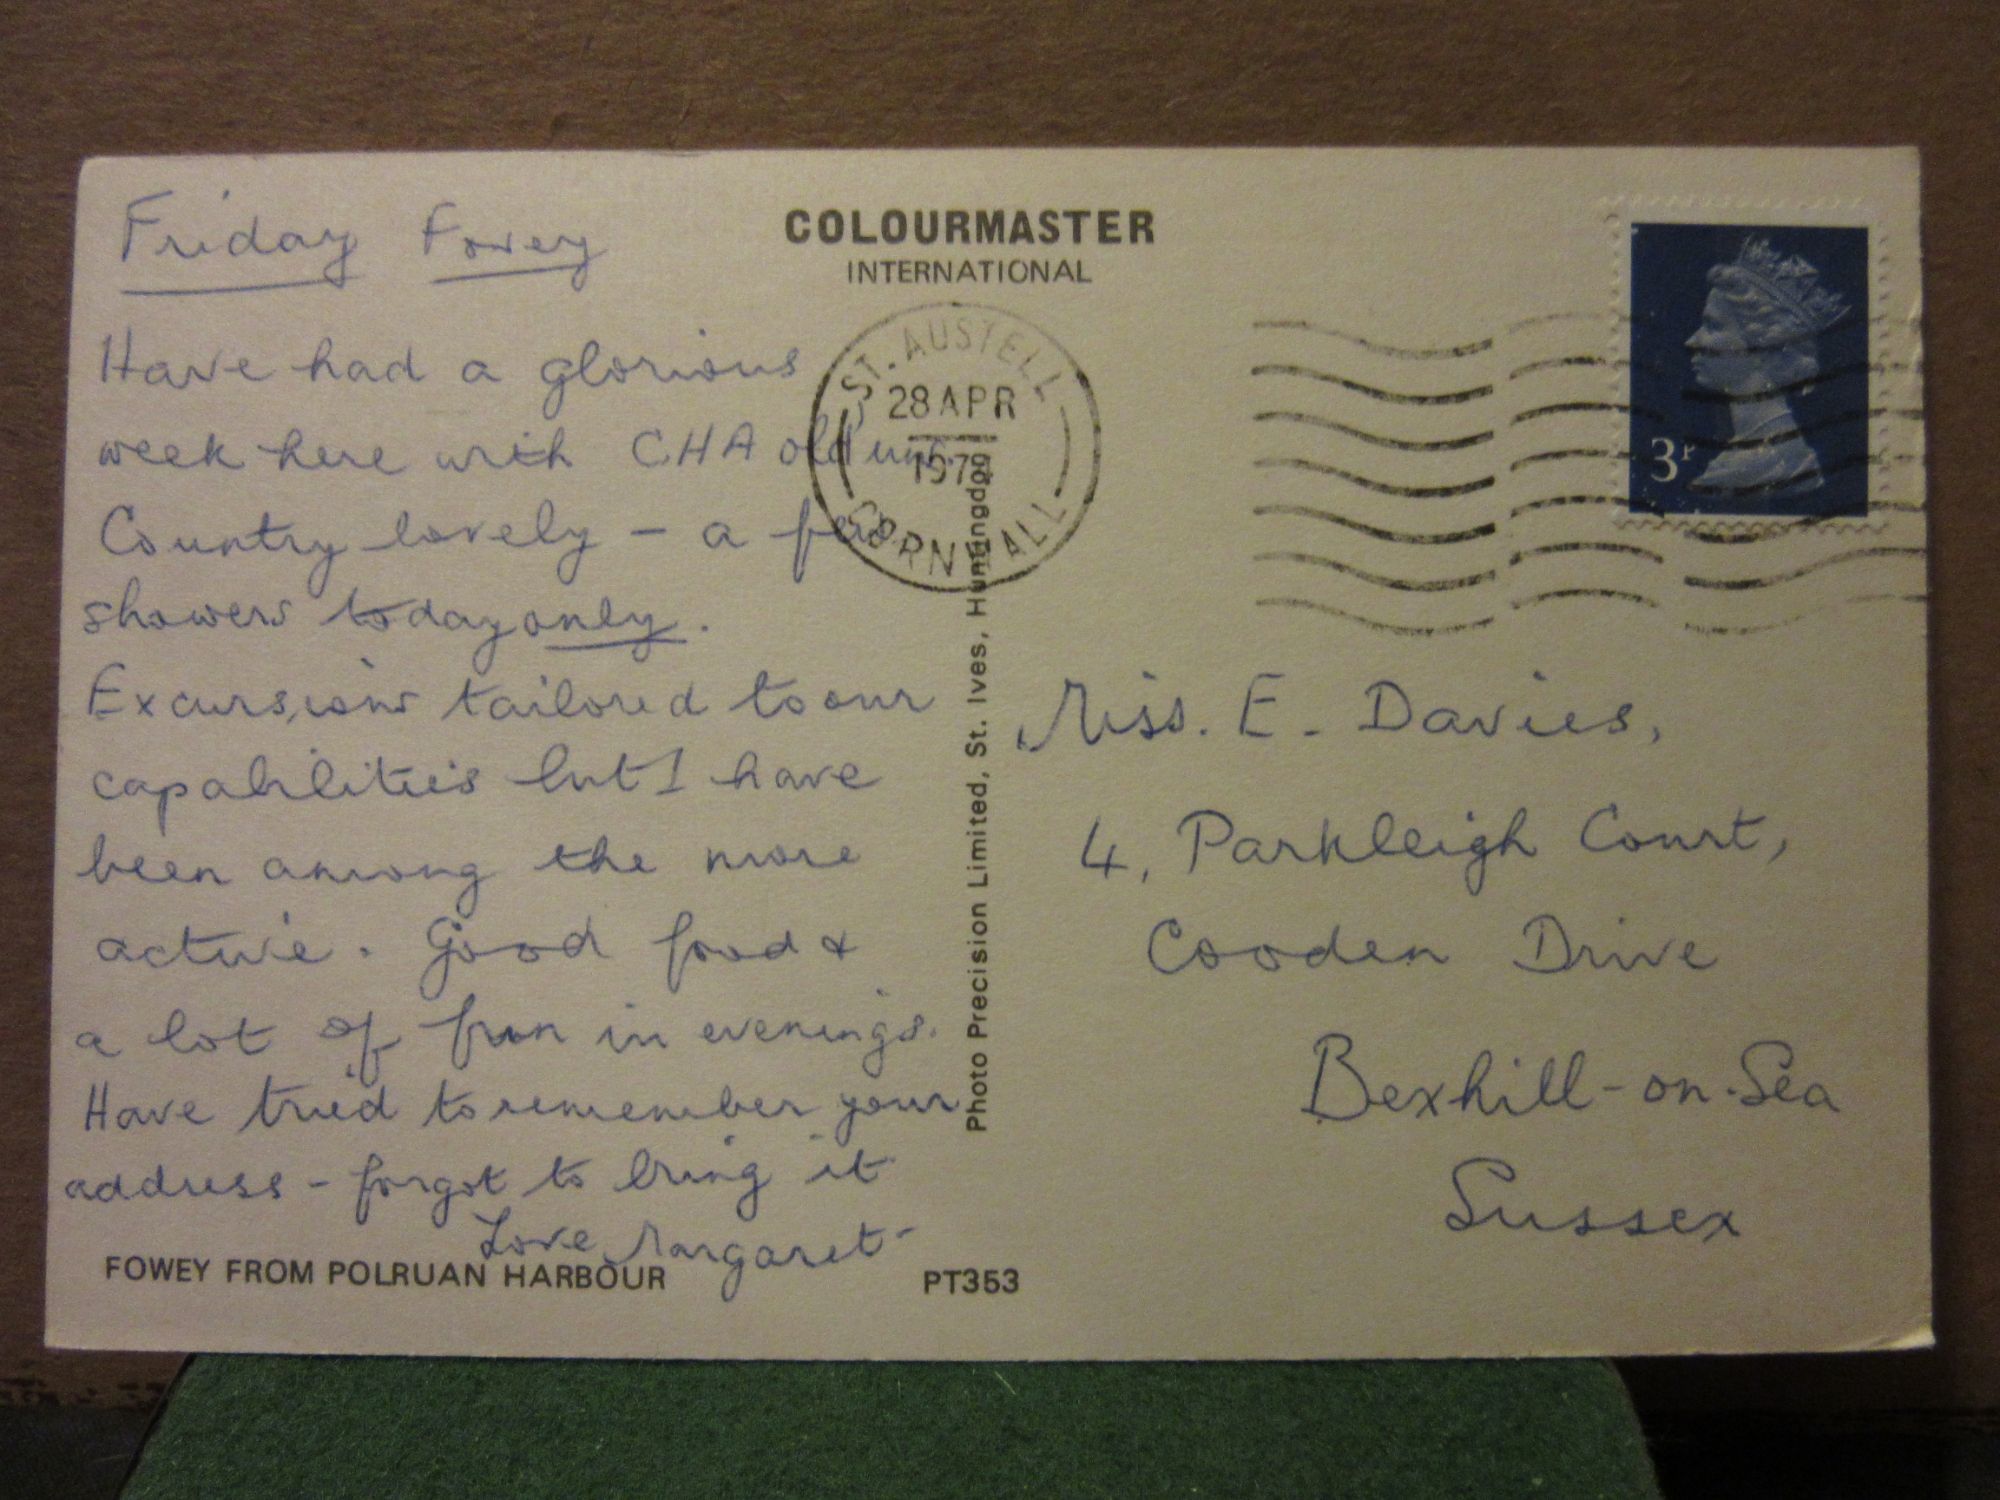 Friday Fowey
Have had a glorious
week here with CHA old uns.
Country lovely - a few
showers today only.
Excursions tailored to our
capabilities but I have
been among the more
active. Good food &
a lot of fun in evenings.
Have tried to remember your
address - forgot to bring it
Love Margaret
FOWEY FROM POLRUAN HARBOUR
PT353
COLOURMASTER
INTERNATIONAL
ST. AUSTELL
28 APR
CORNWALL
Photo Precision Limited, St. Ives, Huntingdon
3P
Miss. E. Davies,
4, Parkleigh Court,
Cooden Drive
Bexhill-on-Sea
Sussex